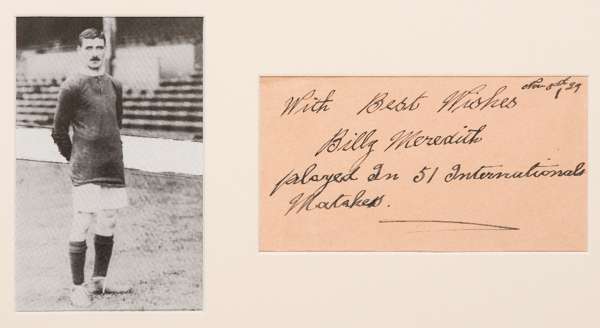 Nov 5th / 29
With Best Wishes
Billy Meredith
played In 51 Internationals
Matches.